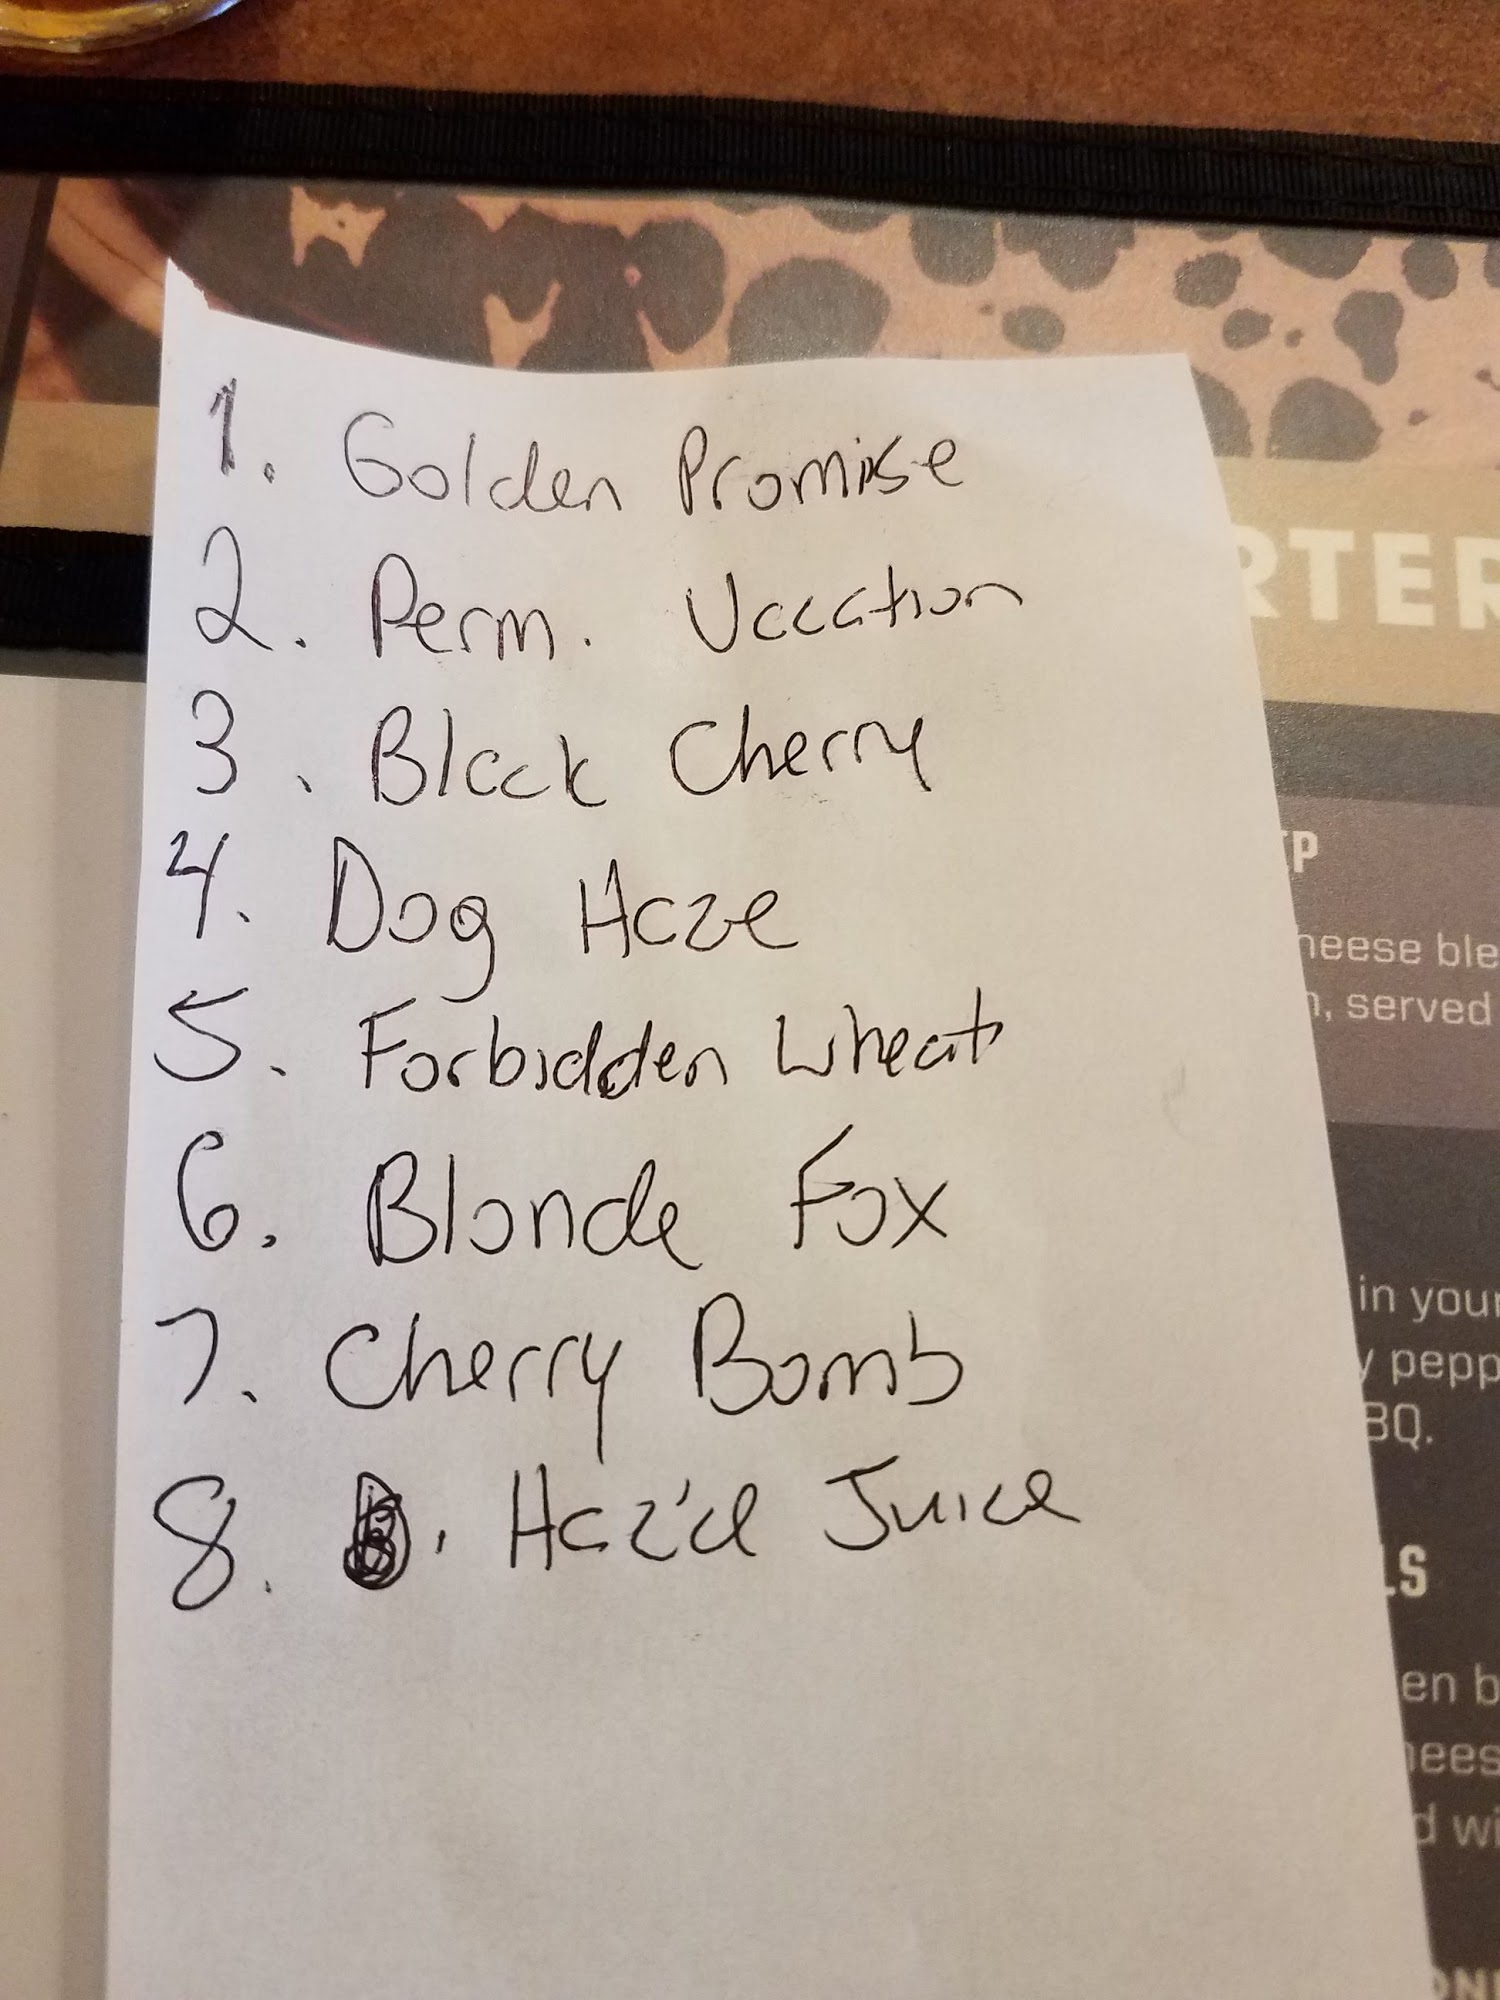 1. Golden Promise
2. Perm. Vacation
RTER
3. Black Cherry
IP
4. Dog Haze
heese ble
, served
5. Forbidden Wheat
6. Blonde Fox
in your
7. Cherry Bomb
y pepp
BQ.
8. . Haz'd Juice
LS
en b
hees
d wi